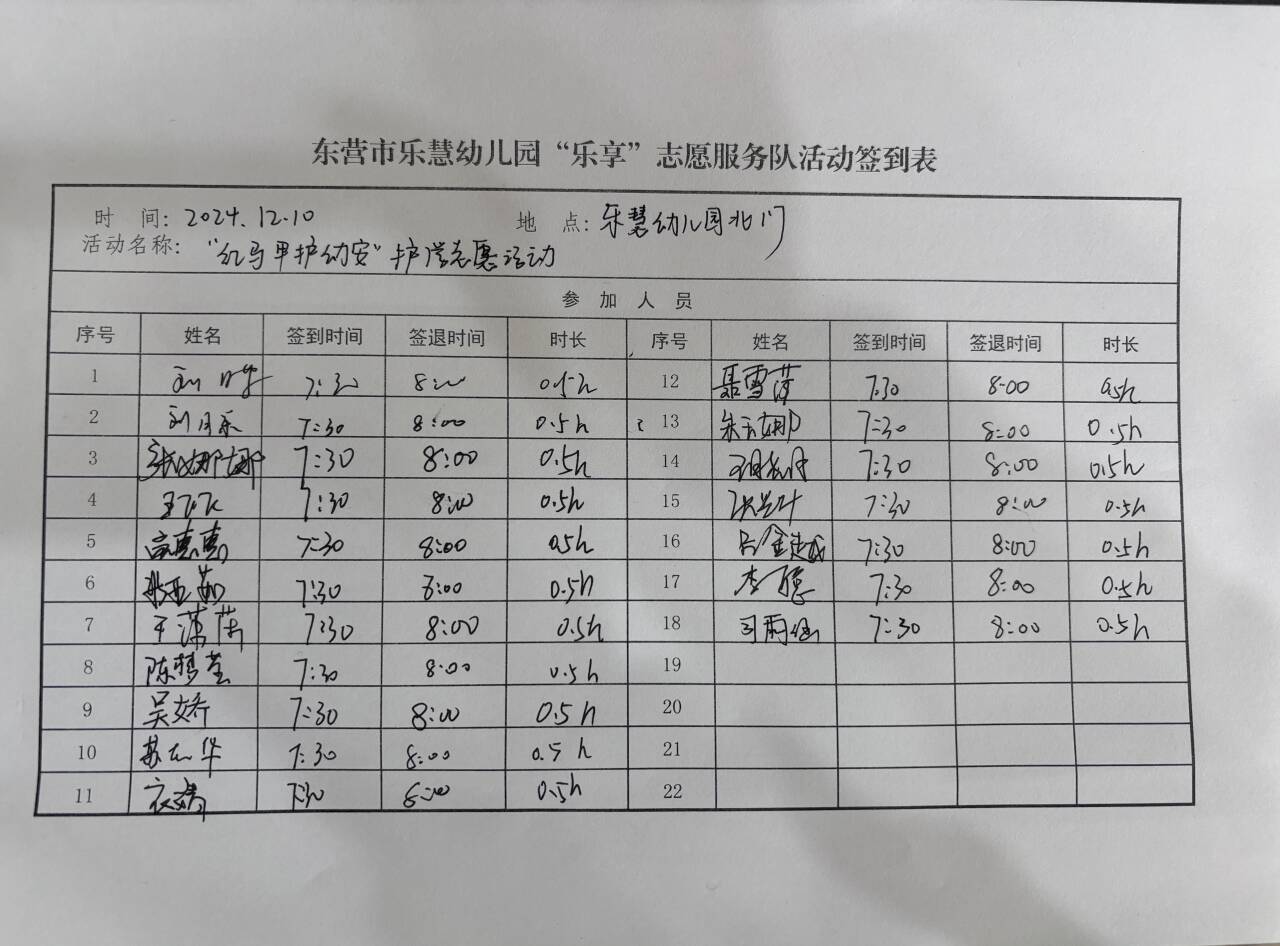 东营市乐慧幼儿园“乐享”志愿服务队活动签到表
时 间: 2024.12.10 地 点: 乐慧幼儿园北门
活动名称: “红马甲护幼安”护学志愿活动
参 加 人 员
序号 姓名 签到时间 签退时间 时长 序号 姓名 签到时间 签退时间 时长
1 7:30 8:00 0.5h 12 聂雪萍 7:30 8:00 0.5h
2 刘月乐 7:30 8:00 0.5h 13 朱云娜 7:30 8:00 0.5h
3 张娜娜 7:30 8:00 0.5h 14 7:30 8:00 0.5h
4 王飞飞 7:30 8:00 0.5h 15 7:30 8:00 0.5h
5 高惠惠 7:30 8:00 0.5h 16 7:30 8:00 0.5h
6 7:30 8:00 0.5h 17 李 7:30 8:00 0.5h
7 7:30 8:00 0.5h 18 司雨 7:30 8:00 0.5h
8 陈梦莹 7:30 8:00 0.5h 19
9 吴娇 7:30 8:00 0.5h 20
10 苏 华 7:30 8:00 0.5h 21
11 衣婧 7:30 8:00 0.5h 22